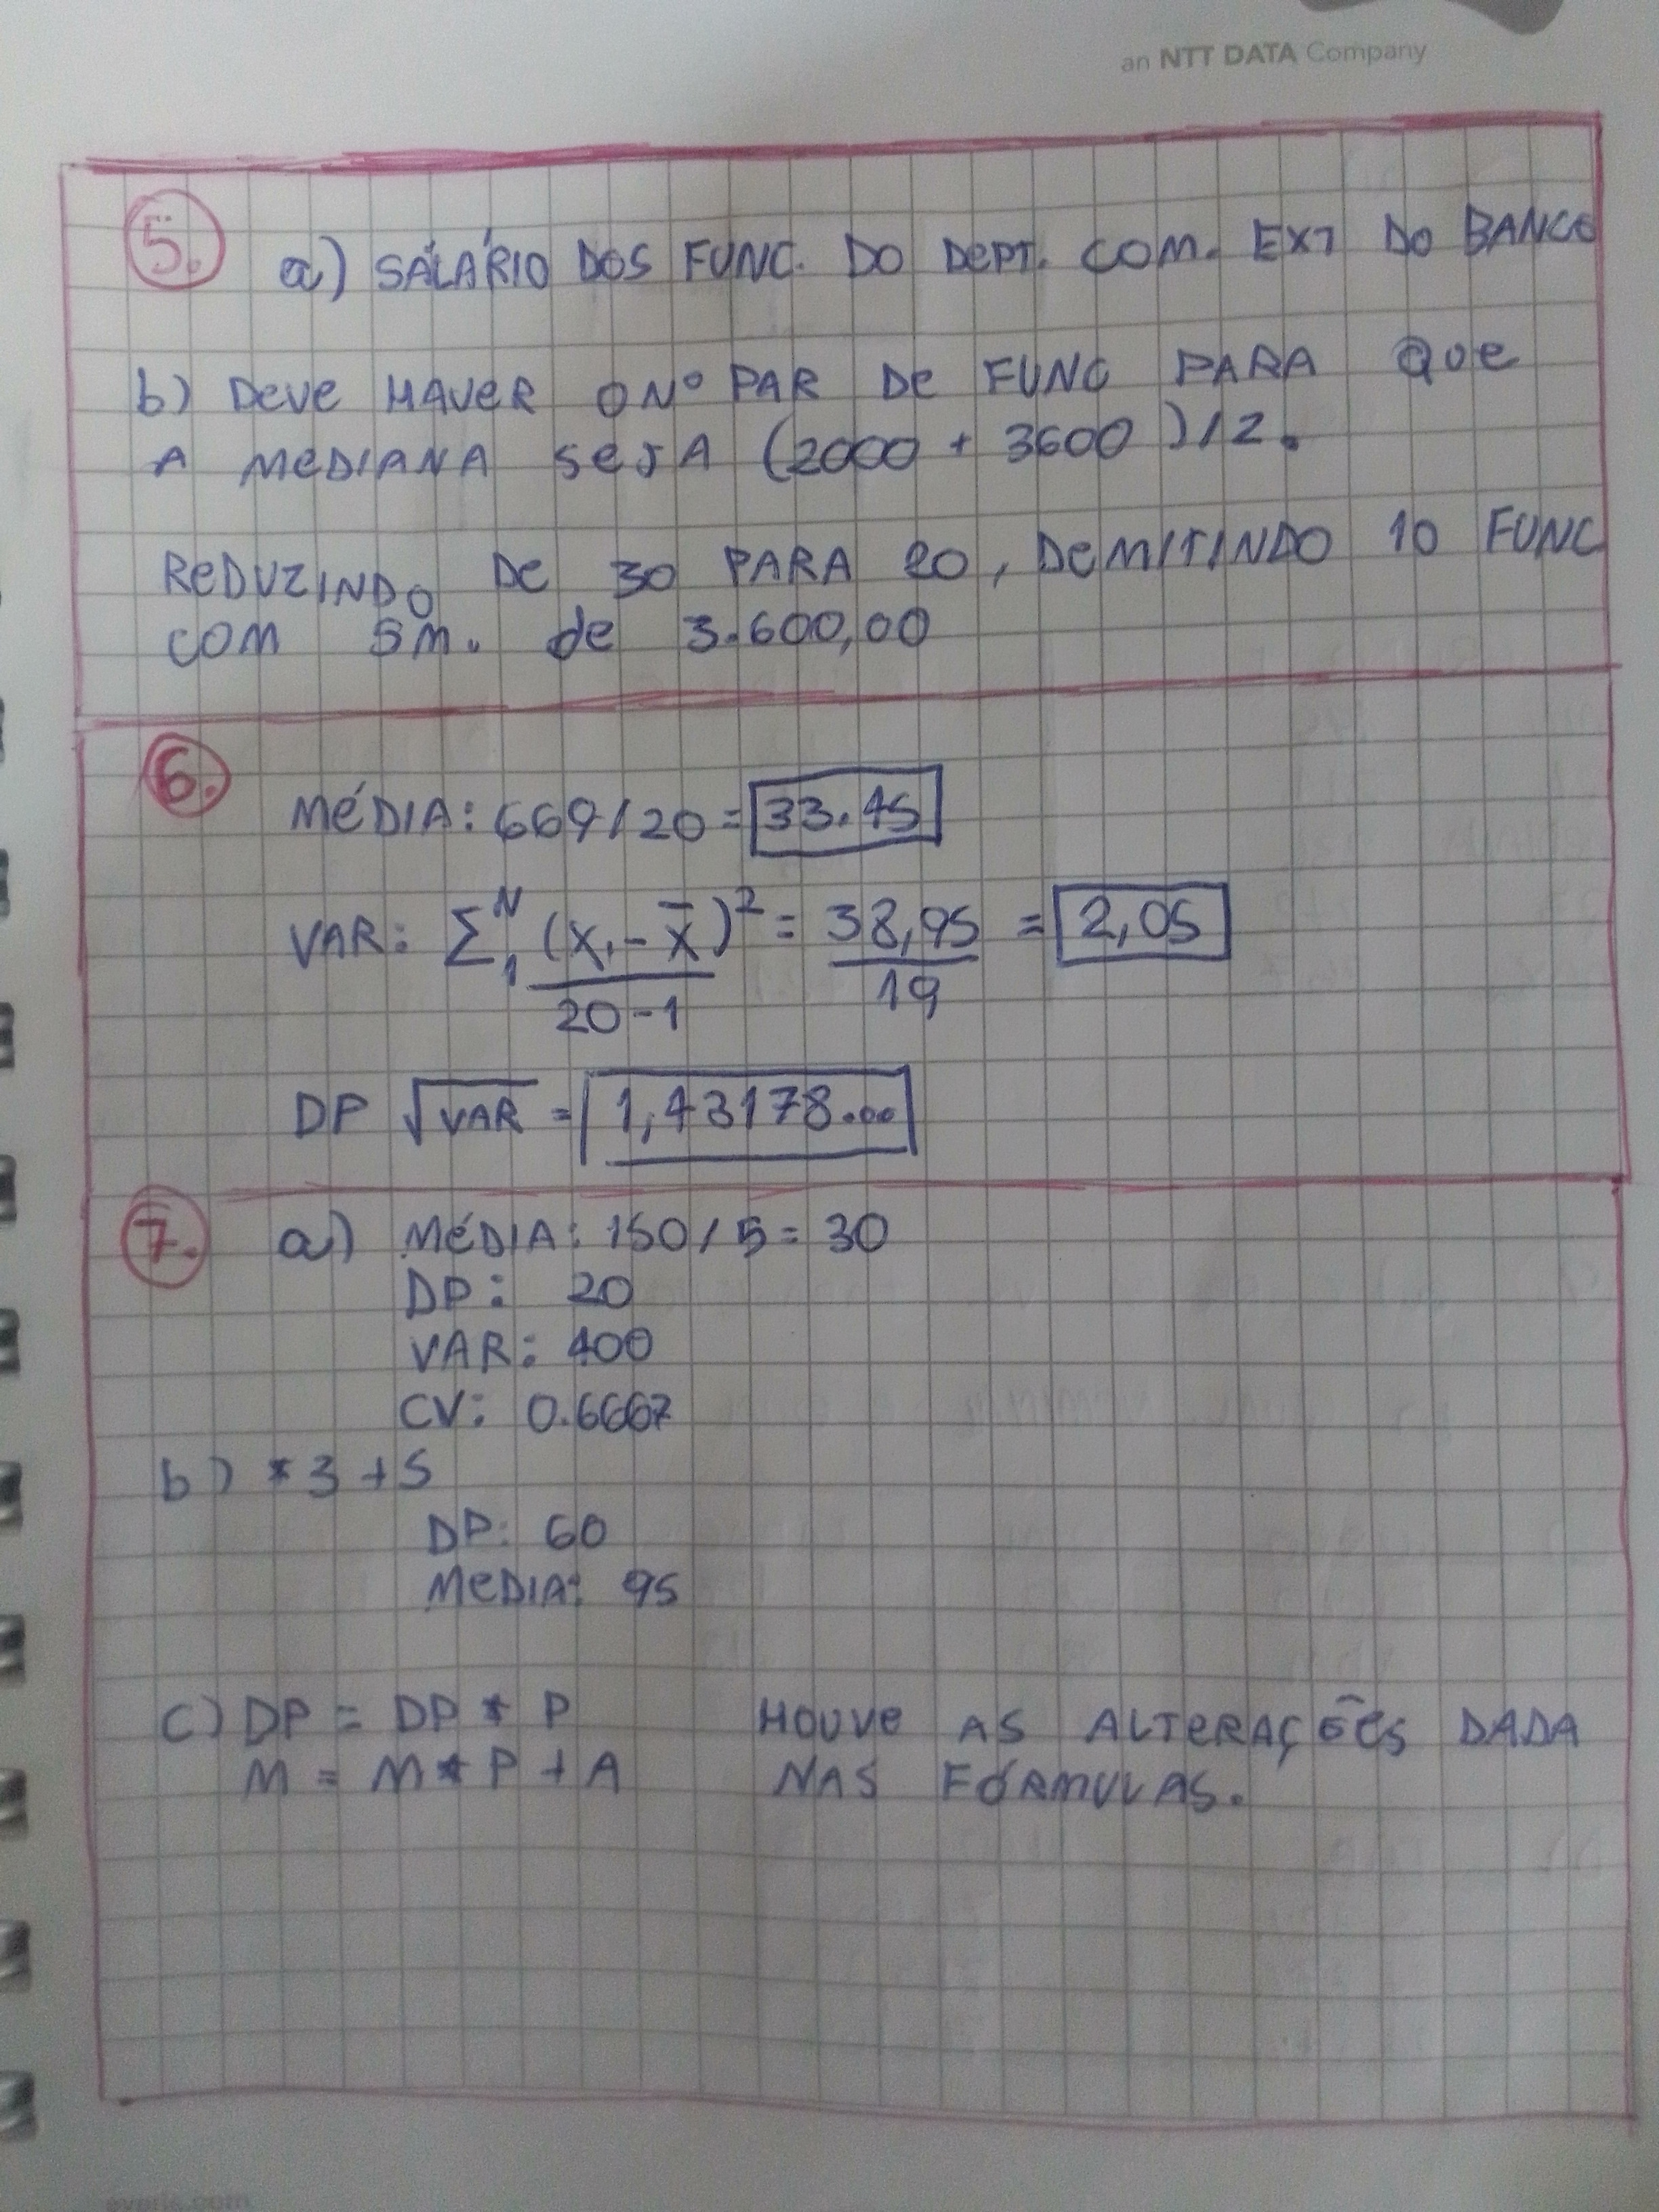 an NTT DATA Company
5.
a) SÁLÁRIO DOS FUNC. DO DEPT. COM. EXT DO BANCO
b) DEVE HAVER O Nº PAR DE FUNC PARA QUE
A MEDIANA SEJA (2000 + 3600)/2.
REDUZINDO DE 30 PARA 20, DEMITINDO 10 FUNC
COM SM. de 3.600,00
6.
MÉDIA: 669/20 = 33.45
VAR: Σ₁ᴺ (xᵢ - x̄)² = 38,95 = 2,05
20-1 19
DP √VAR = 1,43178...
7. a) MÉDIA: 150/5 = 30
DP: 20
VAR: 400
CV: 0.6667
b) *3 +5
DP: 60
MEDIA: 95
c) DP = DP * P HOUVE AS ALTERAÇÕES DADA
M = M * P + A NAS FÓRMULAS.
everis.com